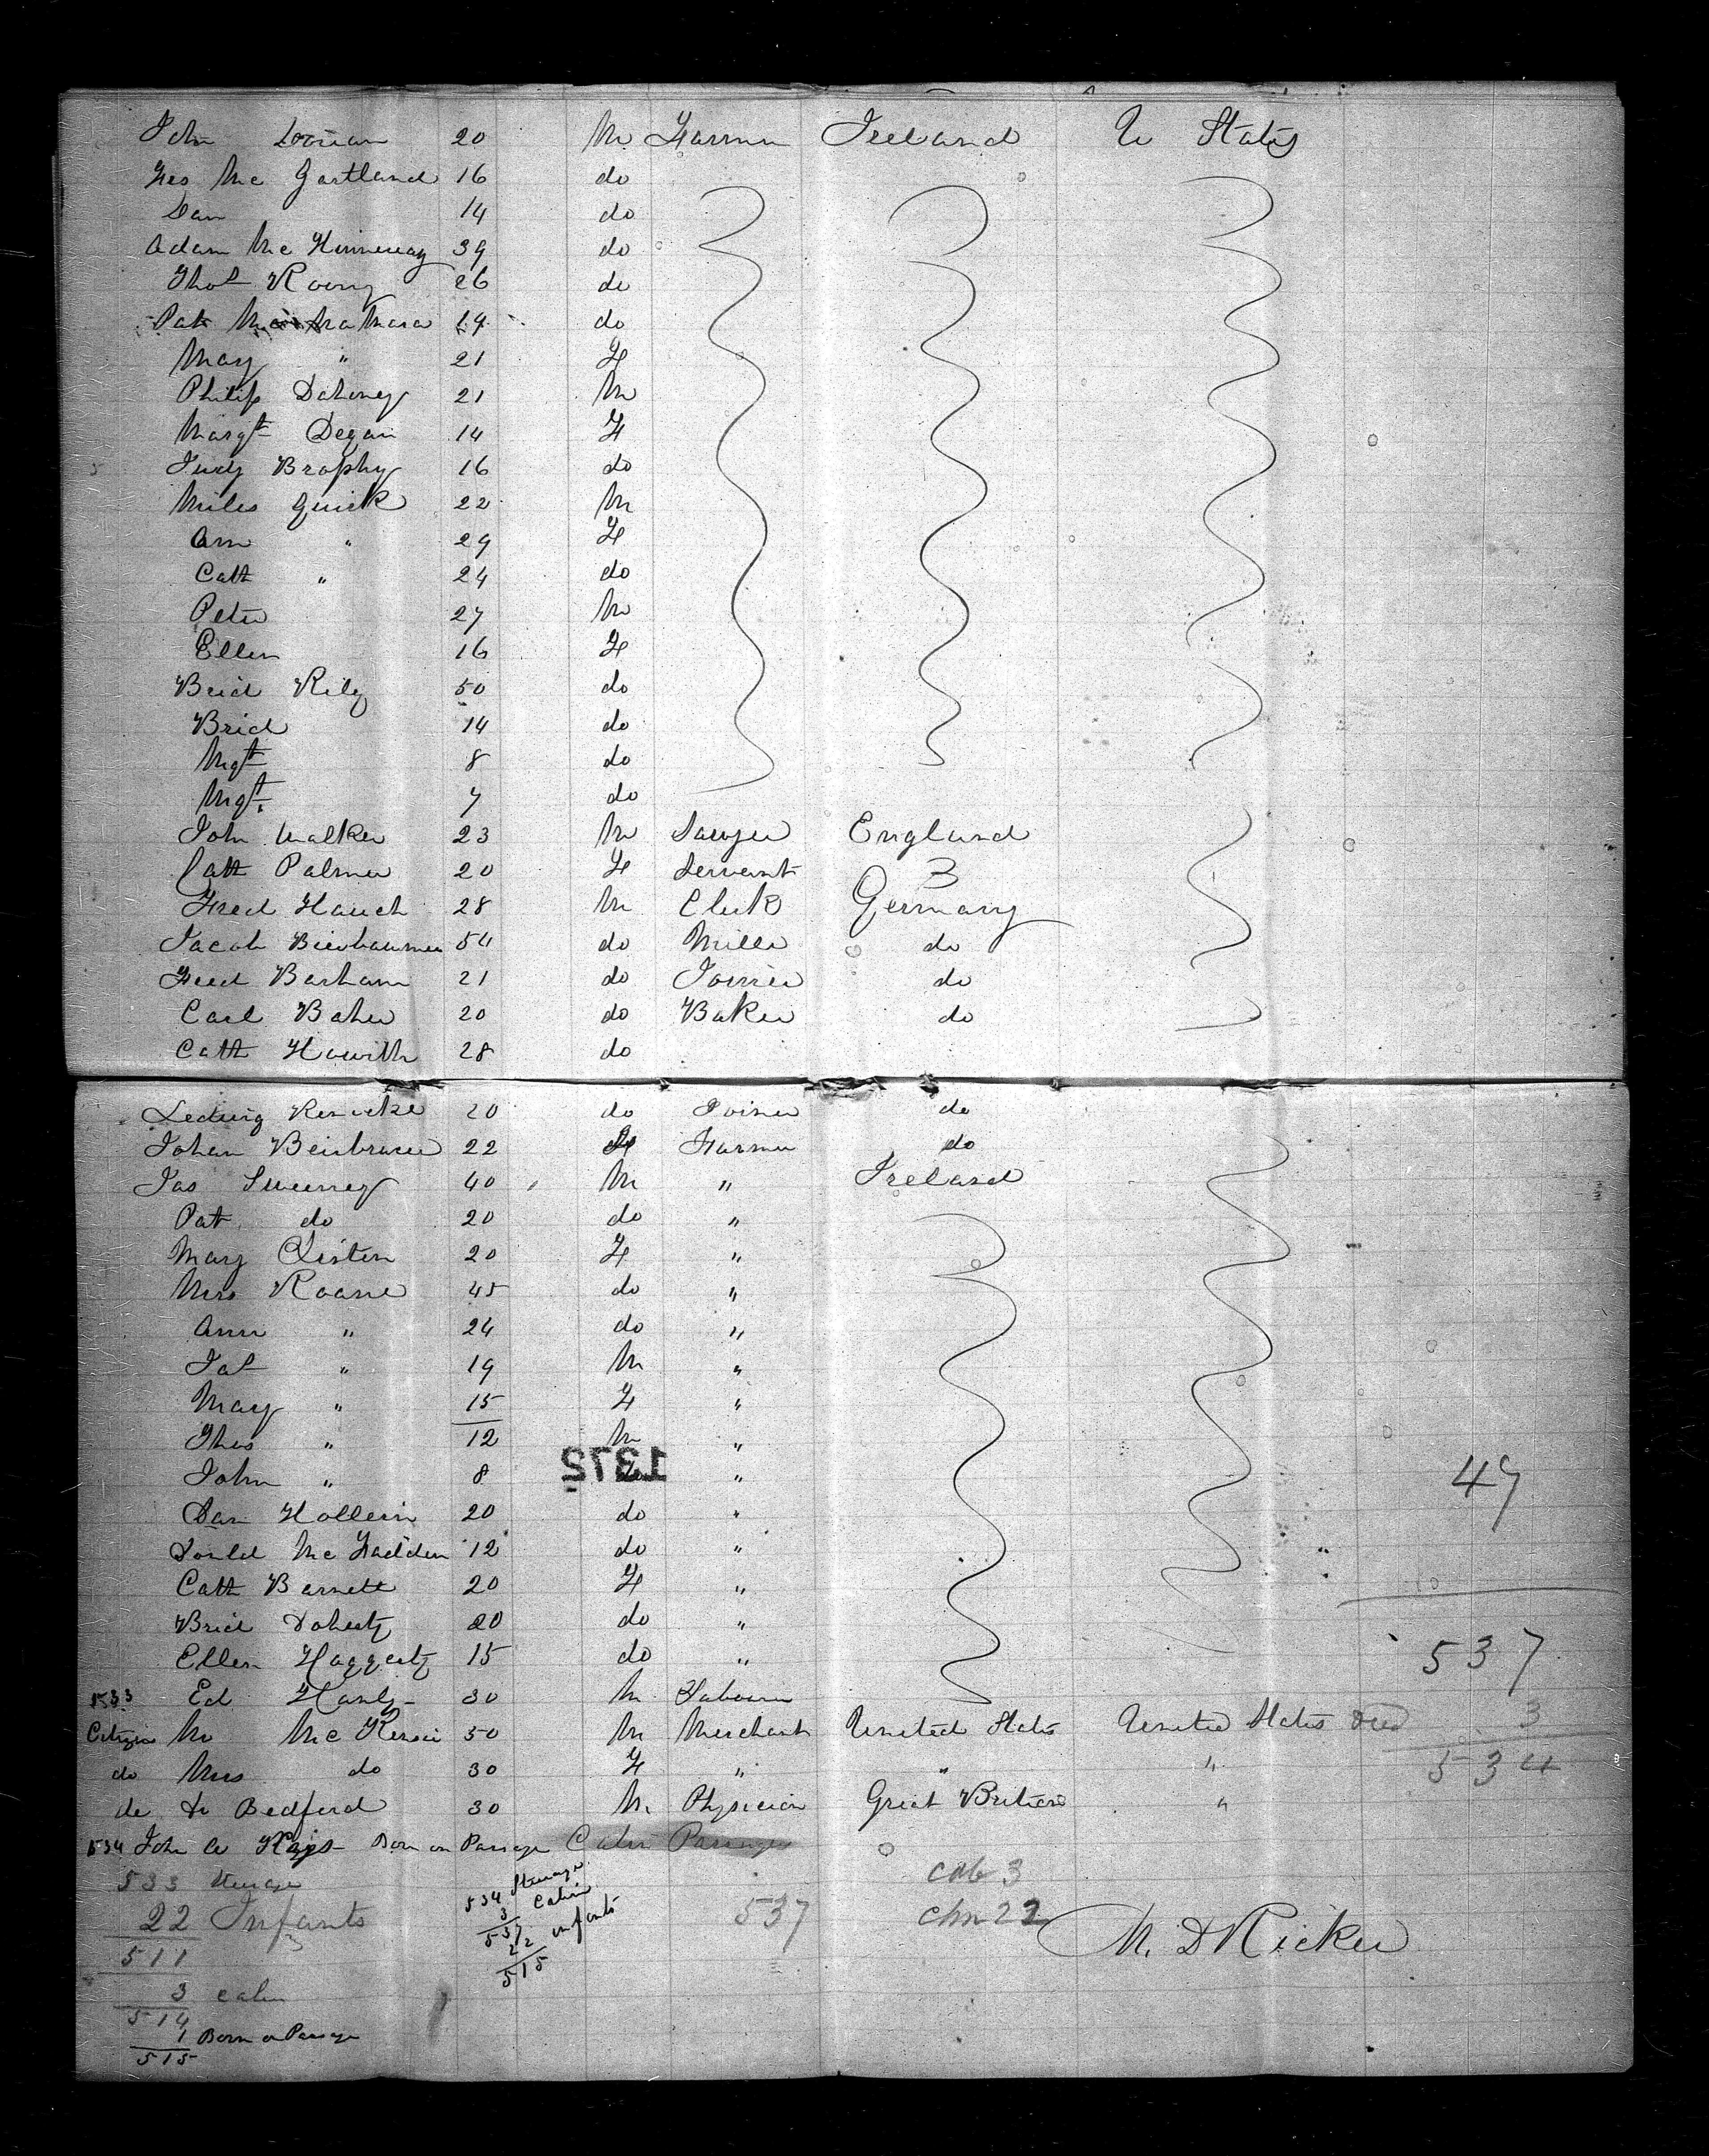 John Dorian 20 M Farmer Ireland U States
Fes Mc Gartland 16 do
Dan 14 do
Adam Mc Kinneway 39 do
Thos Roony 26 do
Pat Mc Namara 19 do
Mary " 21 F
Philip Dohoney 21 M
Margt Degan 14 F
Judy Brophy 16 do
Miles Quirk 22 M
Ann " 29 F
Cath " 24 do
Peter 27 M
Ellen 16 F
Brid Rily 50 do
Brid 14 do
Mgt 8 do
Mgt. 7 do
John Walker 23 M Sawyer England
Cath Palmer 20 F Servant
Fred Hauch 28 M Clerk Germany
Jacob 54 do Miller do
Fred Barham 21 do Joiner do
Carl Baher 20 do Baker do
Cath Howith 28 do
Ledwig Renicke 20 do Joiner do
Johan 22 F Farmer do
Jas Sweeney 40 M " Ireland
Pat do 20 do "
Mary Listen 20 F "
Mrs Roane 45 do "
Ann " 24 do "
Jas " 19 M "
Mary " 15 F "
Thos " 12 M "
John " 8 "
1372
47
Dan Hollern 20 do "
Donld Mc Fadden 12 do " "
Cath Barnett 20 F " "
Brid Doherty 20 do "
537
Ellen Haggerty 15 do "
1533 Ed Hanly 30 M Labourer
Citizen Mr Mc Kensie 50 M Merchant United States United States Died 3
do Mrs do 30 F " " " 534
do Dr Bedford 30 M. Physician Great Britian "
534 John A Hays Born on Passage Cabin Passenger
533 Steerage
534 Steerage
cab 3
22 Infants
3 Cabin
537
chn 22
537
22 infants
M. D Ricker
511
515
3 cabin
514
1 Born on Passage
515